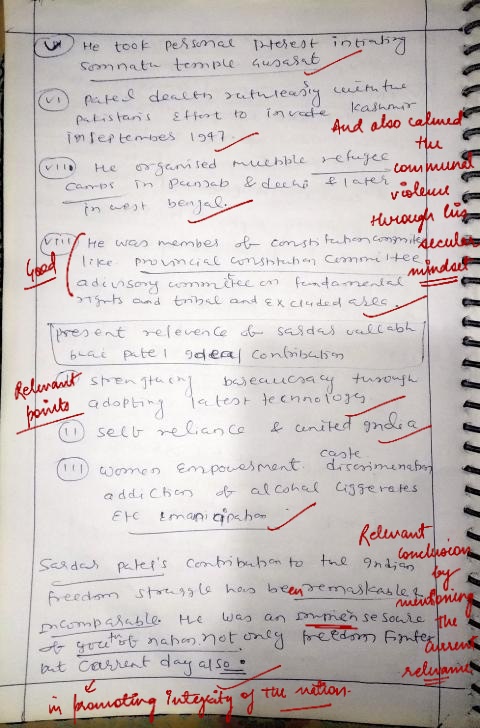 (V) He took personal Interest intiating
somnath temple Gusarat
(VI) Patel dealth ruthleasly with the
Pakistan's Effort to invade Kashmir
in September 1947.
And also calmed
the
communal
violence
through his
secular
mindset
(VII) He organised multible refugee
camps in Punjab & delhi & later
in west bengal.
Good
(VIII) He was member of constitution committe
like provincial constitution Committee
adivisory committe on fundamental
rights and tribal and Excluded area.
Present relevence of sardar vallabh
bhai patel Ideal contribution
Relevant
points
strengthing bureaucracy through
adopting latest technology
(II) self reliance & united India
(III) women Empowerment. caste discrimination
addiction of alcohal ciggerates
Etc Emancipation
Relevant
conclusion
by
mentioning
the
current
relevance
Sardar patel's contribution to the Indian
freedom struggle has been remarkable &
incomparable. He was an immense
of nation. not only freedom
but Current day also.
in promoting Integrity of the nation.